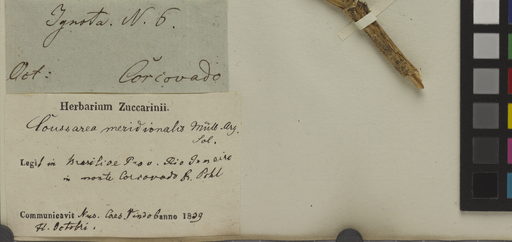 Ignota. N. 6.
Oct: Corcovado
Herbarium Zuccarinii.
Coussarea meridionalis Müll. Arg.
Sol.
Legit in Brasiliae Prov. Rio Janeiro
in monte Corcovado Pohl
Communicavit Mus. Caes. Vindobonno 1839
Octobri.